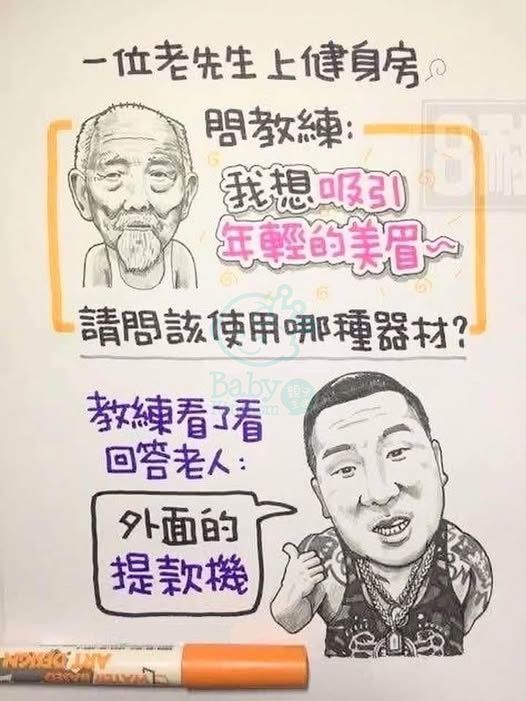 一位老先生上健身房
問教練:
我想吸引
年輕的美眉~
請問該使用哪種器材?
教練看了看
回答老人:
外面的
提款機
Baby
WATER BASED
ART DESIGN